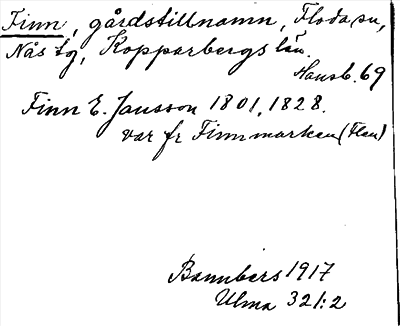 Finn, gårdstillnamn, Floda sn,
Nås tg, Kopparbergs län.
Hausb. 69
Finn E. Jansson 1801, 1828.
var fr Finnmarken (Flen)
Bannbers 1917
Ulma 321:2